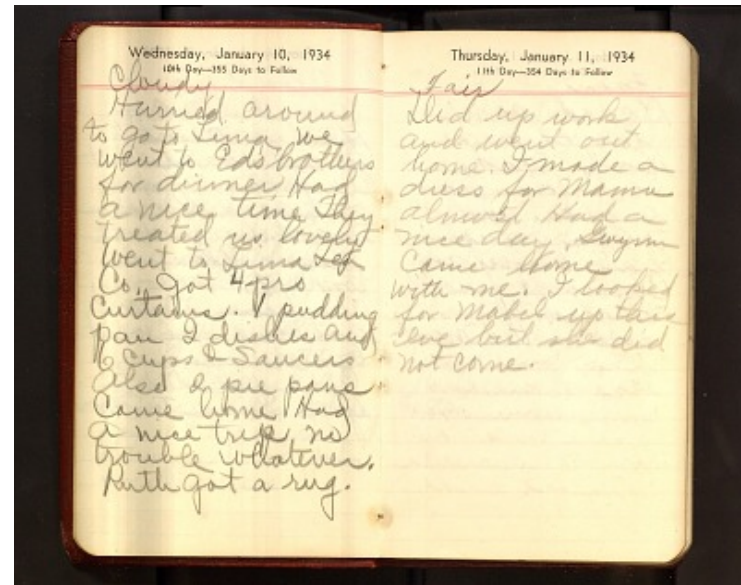 Wednesday, January 10, 1934
10th Day—355 Days to Follow
Cloudy
Hurried around
to go to Lima we
went to Eds brothers
for dinner Had
a nice time They
treated us lovely
Went to Lima
Co. Got 4 prs
Curtains. 1 pudding
pan 2 dishes and
6 cups & Saucers
Also 2 pie pans
Came home Had
a nice trip no
trouble whatever.
Ruth got a rug.
Thursday, January 11, 1934
11th Day—354 Days to Follow
Fair
Did up work
and went out
home. I made a
dress for Mama
almost Had a
nice day. Gwynn
Came home
with me. I looked
for Mabel up this
eve but she did
not come.